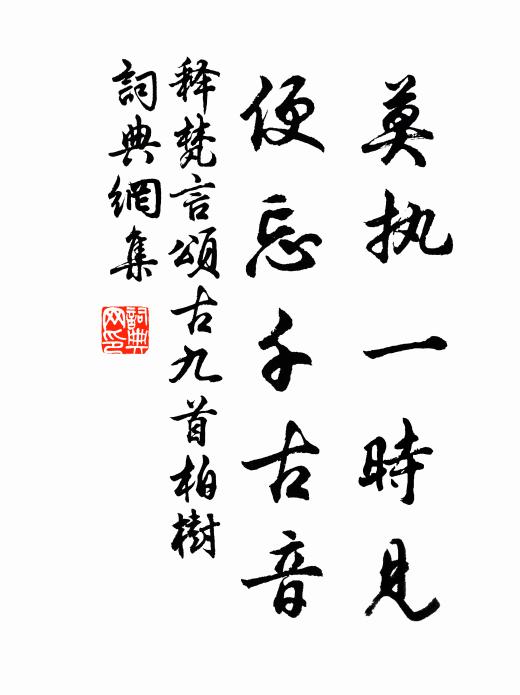 莫执一時見
便忘千古音
释梵言頌古九首柏樹
詞典網集
詞典網印